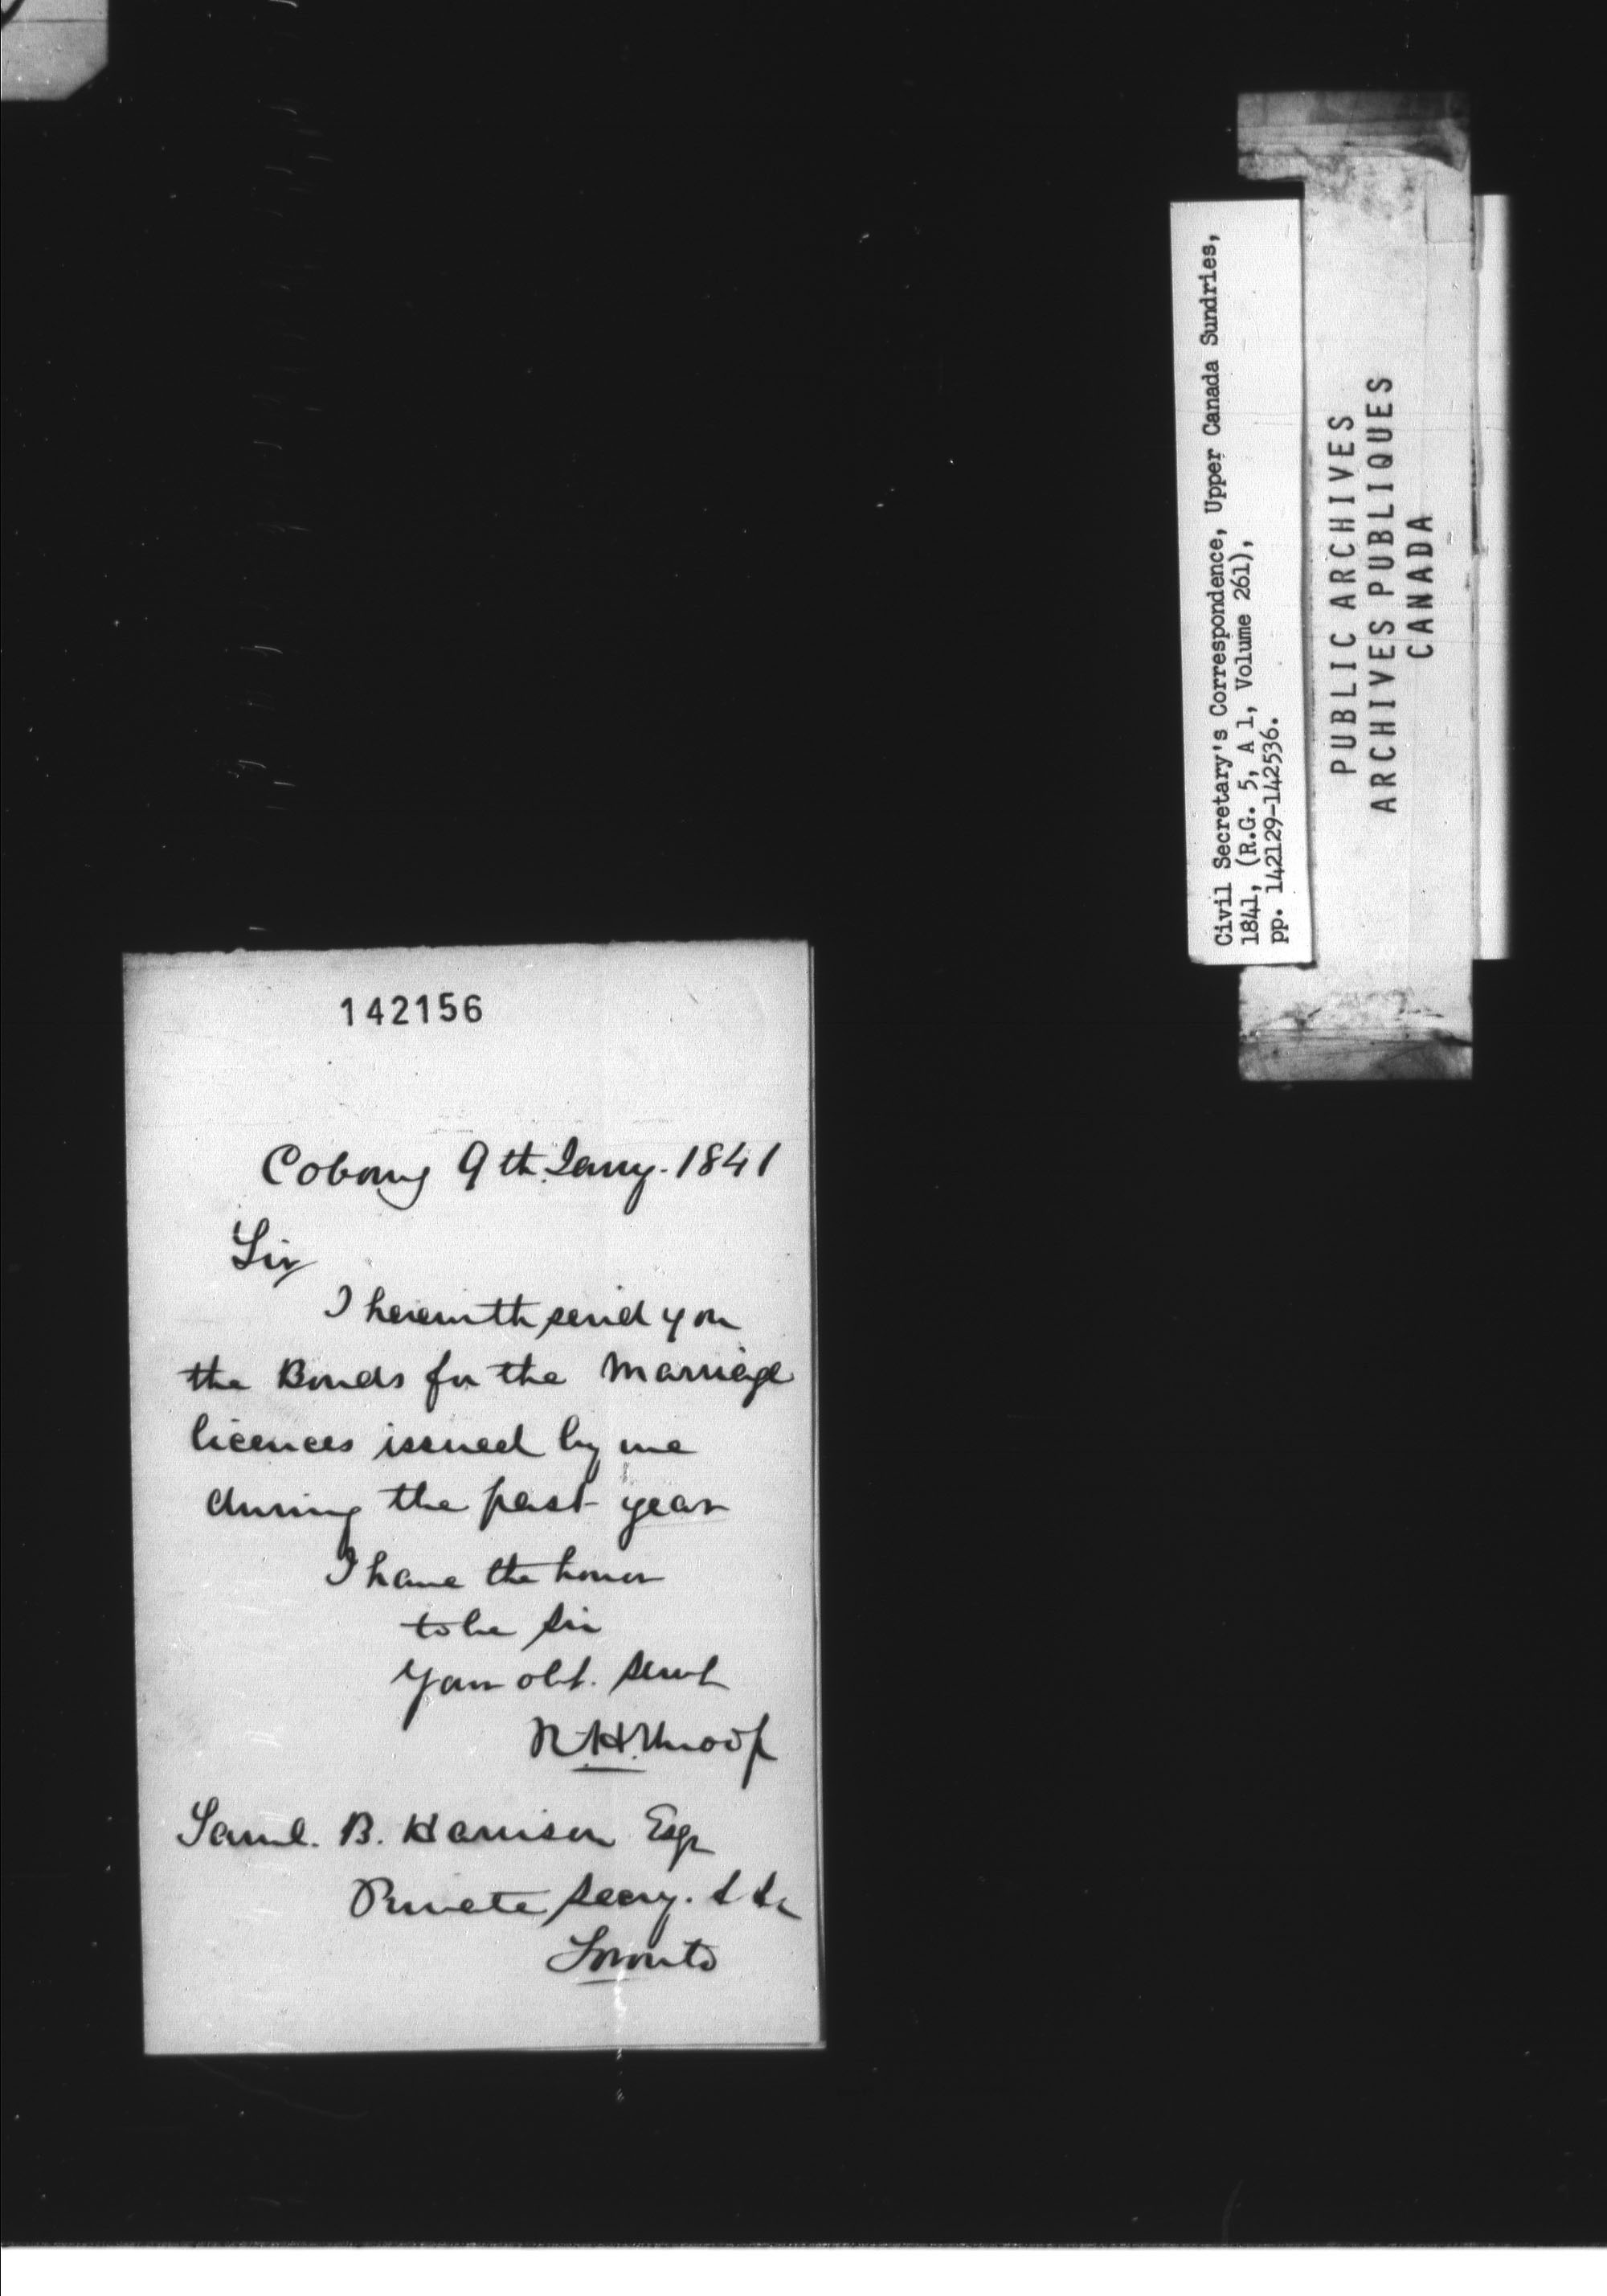 142156
Cobourg 9th Jany. 1841
Sir
I herewith send you
the Bonds for the Marriage
licences issued by me
during the past year
I have the honor
to be Sir
Your obt. Servt
R. H. Throop
Saml. B. Harrison Esqr
Private Secry. & &c
Toronto
Civil Secretary's Correspondence, Upper Canada Sundries,
1841, (R.G. 5, A 1, Volume 261),
pp. 142129-142536.
PUBLIC ARCHIVES
ARCHIVES PUBLIQUES
CANADA